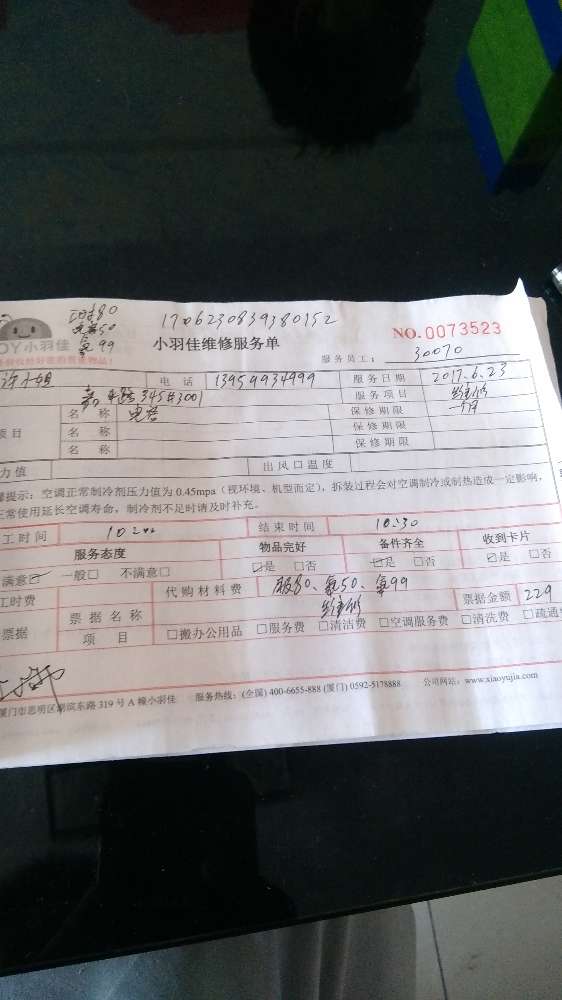 80
50
99
1706230839380152
JOY小羽佳
小羽佳维修服务单
NO.0073523
服务员工： 30070
小姐 电话 13959934999 服务日期 2017.6.23
345#3001 服务项目 维修
项目 名称 保修期限 一个月
名称 保修期限
名称 保修期限
力值 出风口温度
提示：空调正常制冷剂压力值为0.45mpa（视环境、机型而定），拆装过程会对空调制冷或制热造成一定影响，
正常使用延长空调寿命，制冷剂不足时请及时补充。
工时间 10:00 结束时间 10:30
服务态度 物品完好 备件齐全 收到卡片
满意☑ 一般□ 不满意□ ☑是 □否 ☑是 □否 ☑是 □否
工时费 代购材料费 服80、氧50、氧99
票据 票据名称 维修 票据金额 229
项目 □搬办公用品 □服务费 □清洁费 □空调服务费 □清洗费 □疏通
厦门市思明区湖滨东路319号A幢小羽佳 服务热线：(全国) 400-6655-888 (厦门) 0592-5178888 公司网站：www.xiaoyujia.com